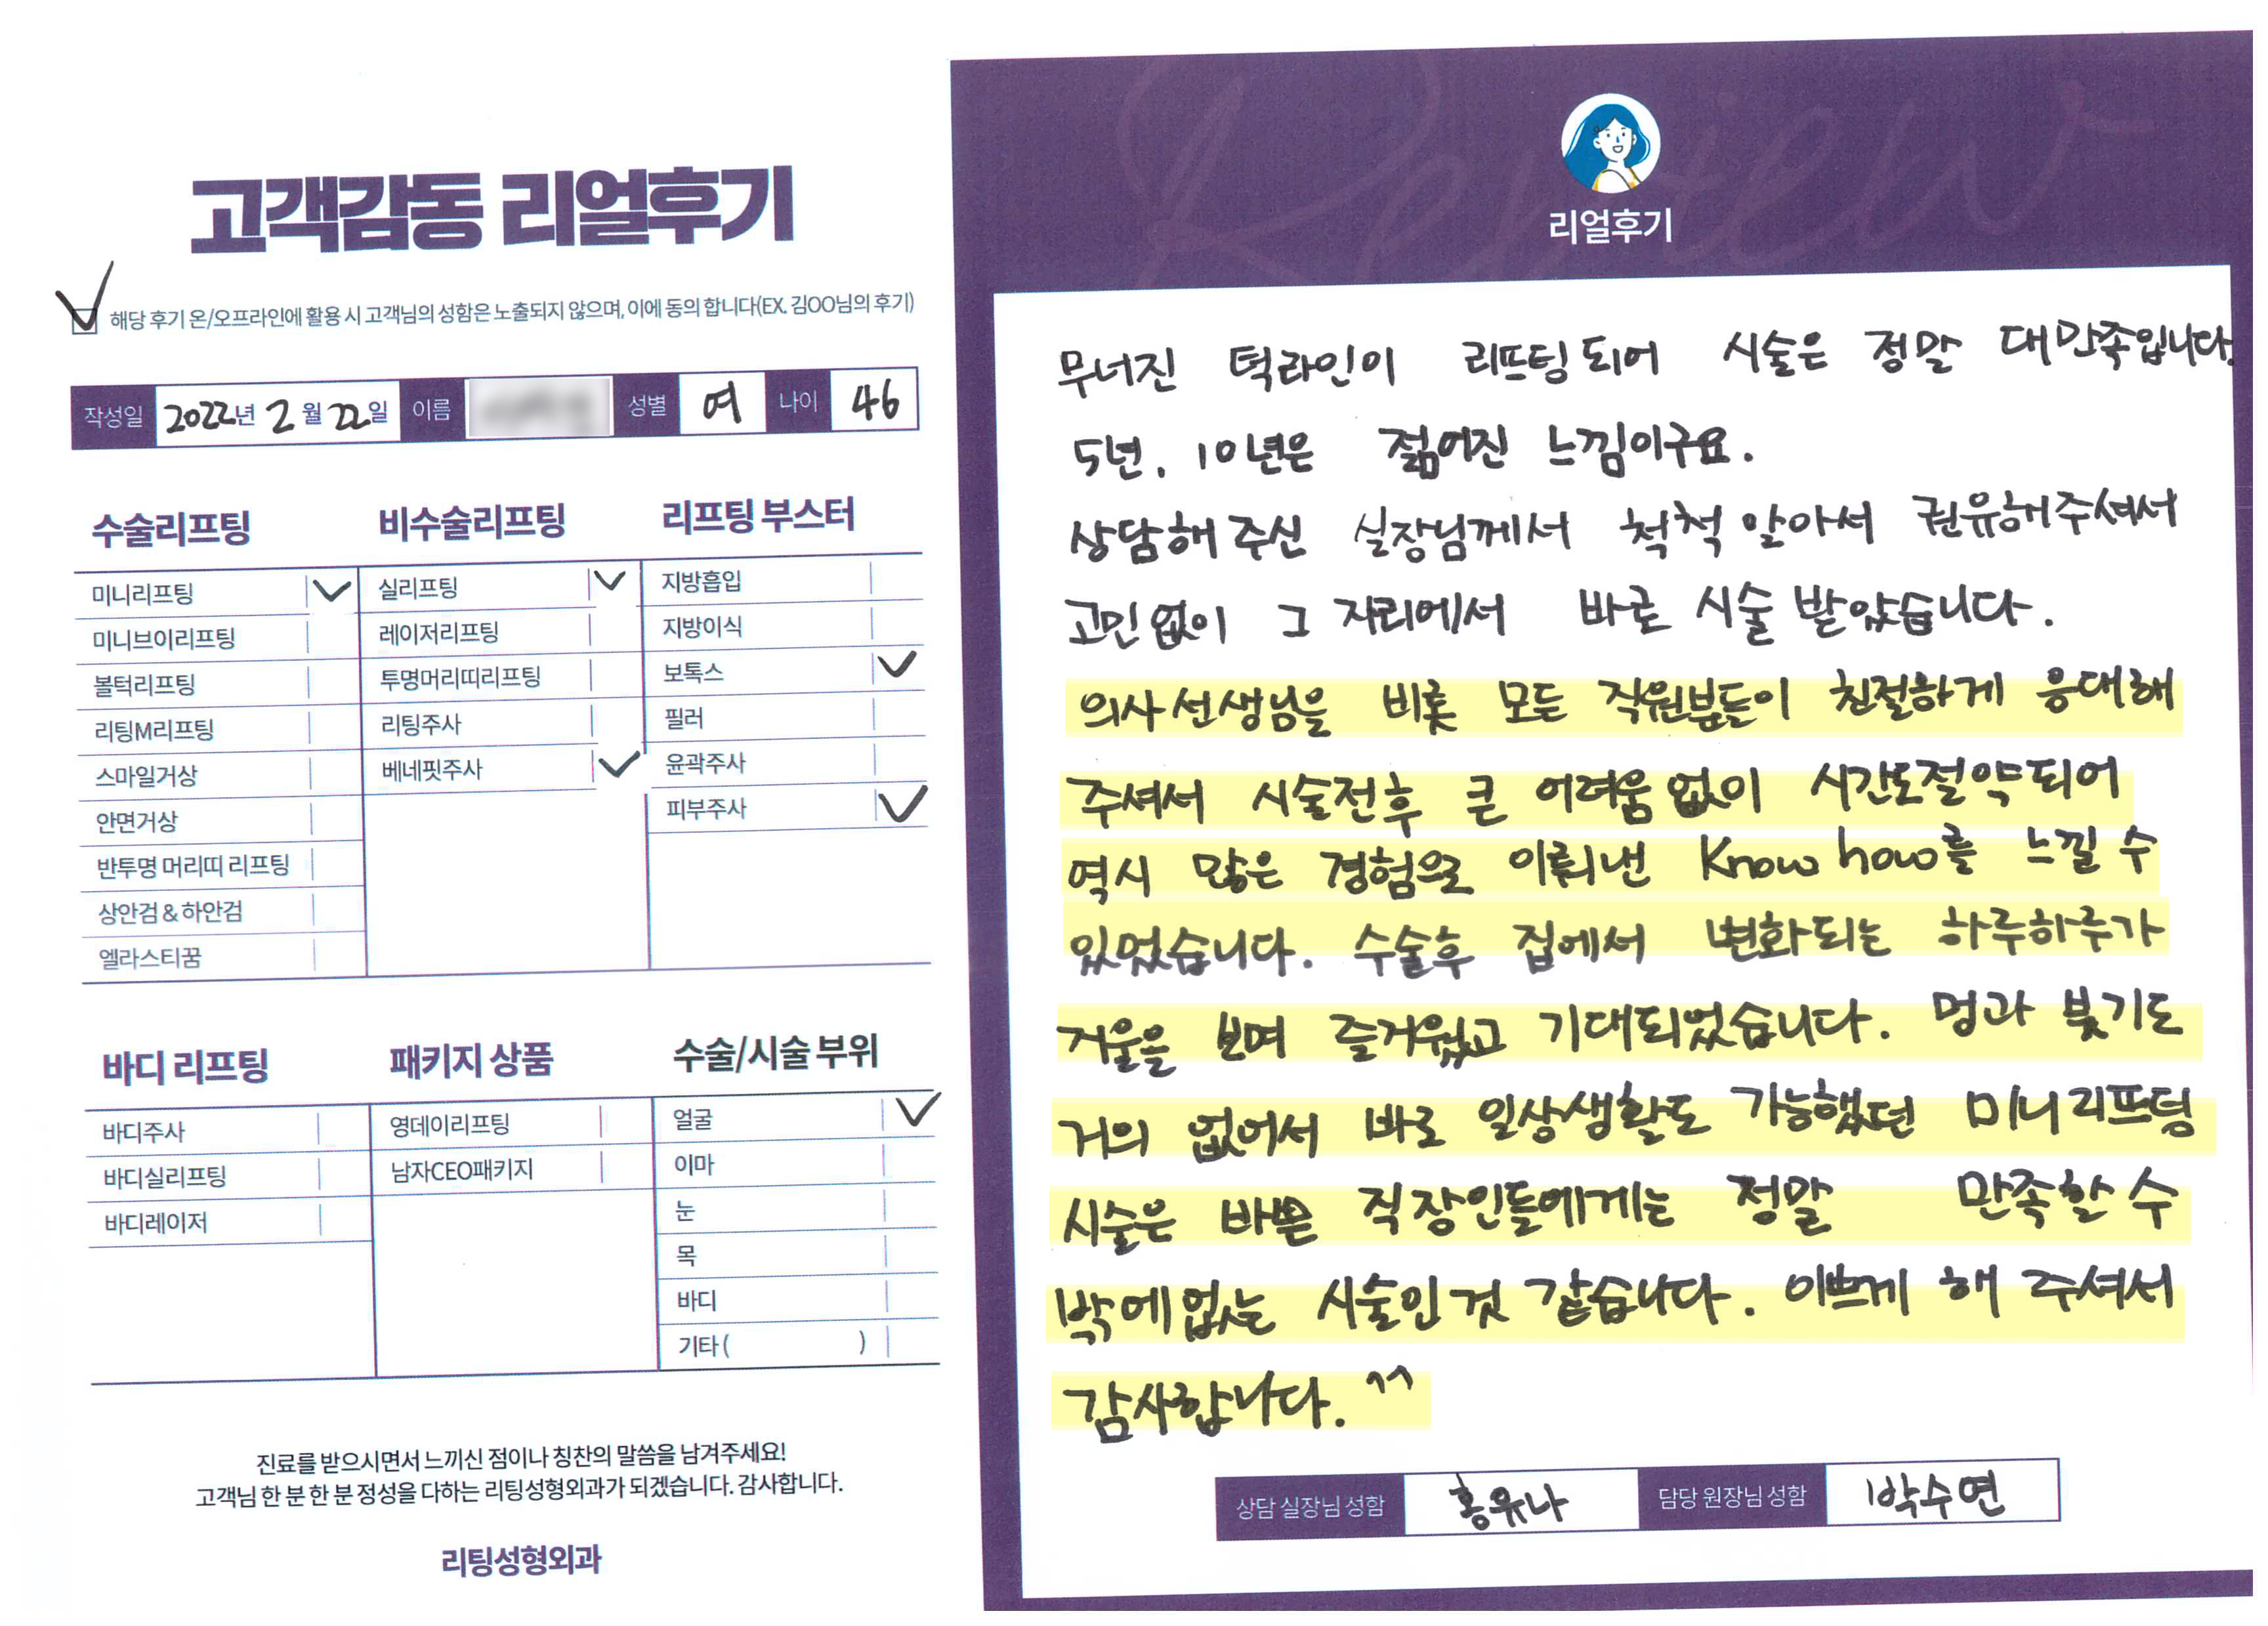 고객감동 리얼후기
해당 후기 온/오프라인에 활용 시 고객님의 성함은 노출되지 않으며, 이에 동의 합니다(EX. 김OO님의 후기)
작성일 2022년 2월 22일 이름 성별 여 나이 46
수술리프팅
미니리프팅
미니브이리프팅
볼턱리프팅
리팅M리프팅
스마일거상
안면거상
반투명 머리띠 리프팅
상안검 & 하안검
엘라스티꿈
비수술리프팅
실리프팅
레이저리프팅
투명머리띠리프팅
리팅주사
베네핏주사
리프팅 부스터
지방흡입
지방이식
보톡스
필러
윤곽주사
피부주사
바디 리프팅
바디주사
바디실리프팅
바디레이저
패키지 상품
영데이리프팅
남자CEO패키지
수술/시술 부위
얼굴
이마
눈
목
바디
기타 ( )
진료를 받으시면서 느끼신 점이나 칭찬의 말씀을 남겨주세요!
고객님 한 분 한 분 정성을 다하는 리팅성형외과가 되겠습니다. 감사합니다.
리팅성형외과
Review
리얼후기
무너진 턱라인이 리프팅되어 시술은 정말 대만족입니다.
5년, 10년은 젊어진 느낌이구요.
상담해 주신 실장님께서 척척 알아서 권유해주셔서
고민 없이 그 자리에서 바로 시술 받았습니다.
의사선생님을 비롯 모든 직원분들이 친절하게 응대해
주셔서 시술전후 큰 어려움 없이 시간도절약되어
역시 많은 경험으로 이뤄낸 Know how를 느낄 수
있었습니다. 수술후 집에서 변화되는 하루하루가
거울을 보며 즐거웠고 기대되었습니다. 멍과 붓기도
거의 없어서 바로 일상생활도 가능했던 미니리프팅
시술은 바쁜 직장인들에게는 정말 만족할 수
밖에없는 시술인것 같습니다. 이쁘게 해 주셔서
감사합니다. ^^
상담 실장님 성함 홍유나 담당 원장님 성함 박수연